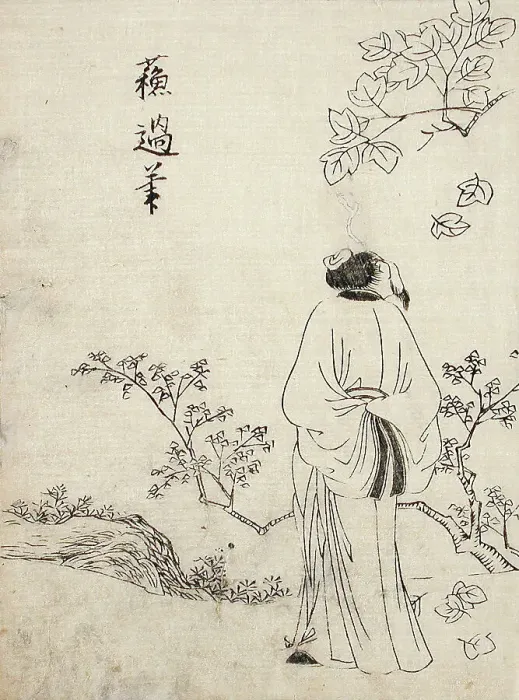 蘓過筆